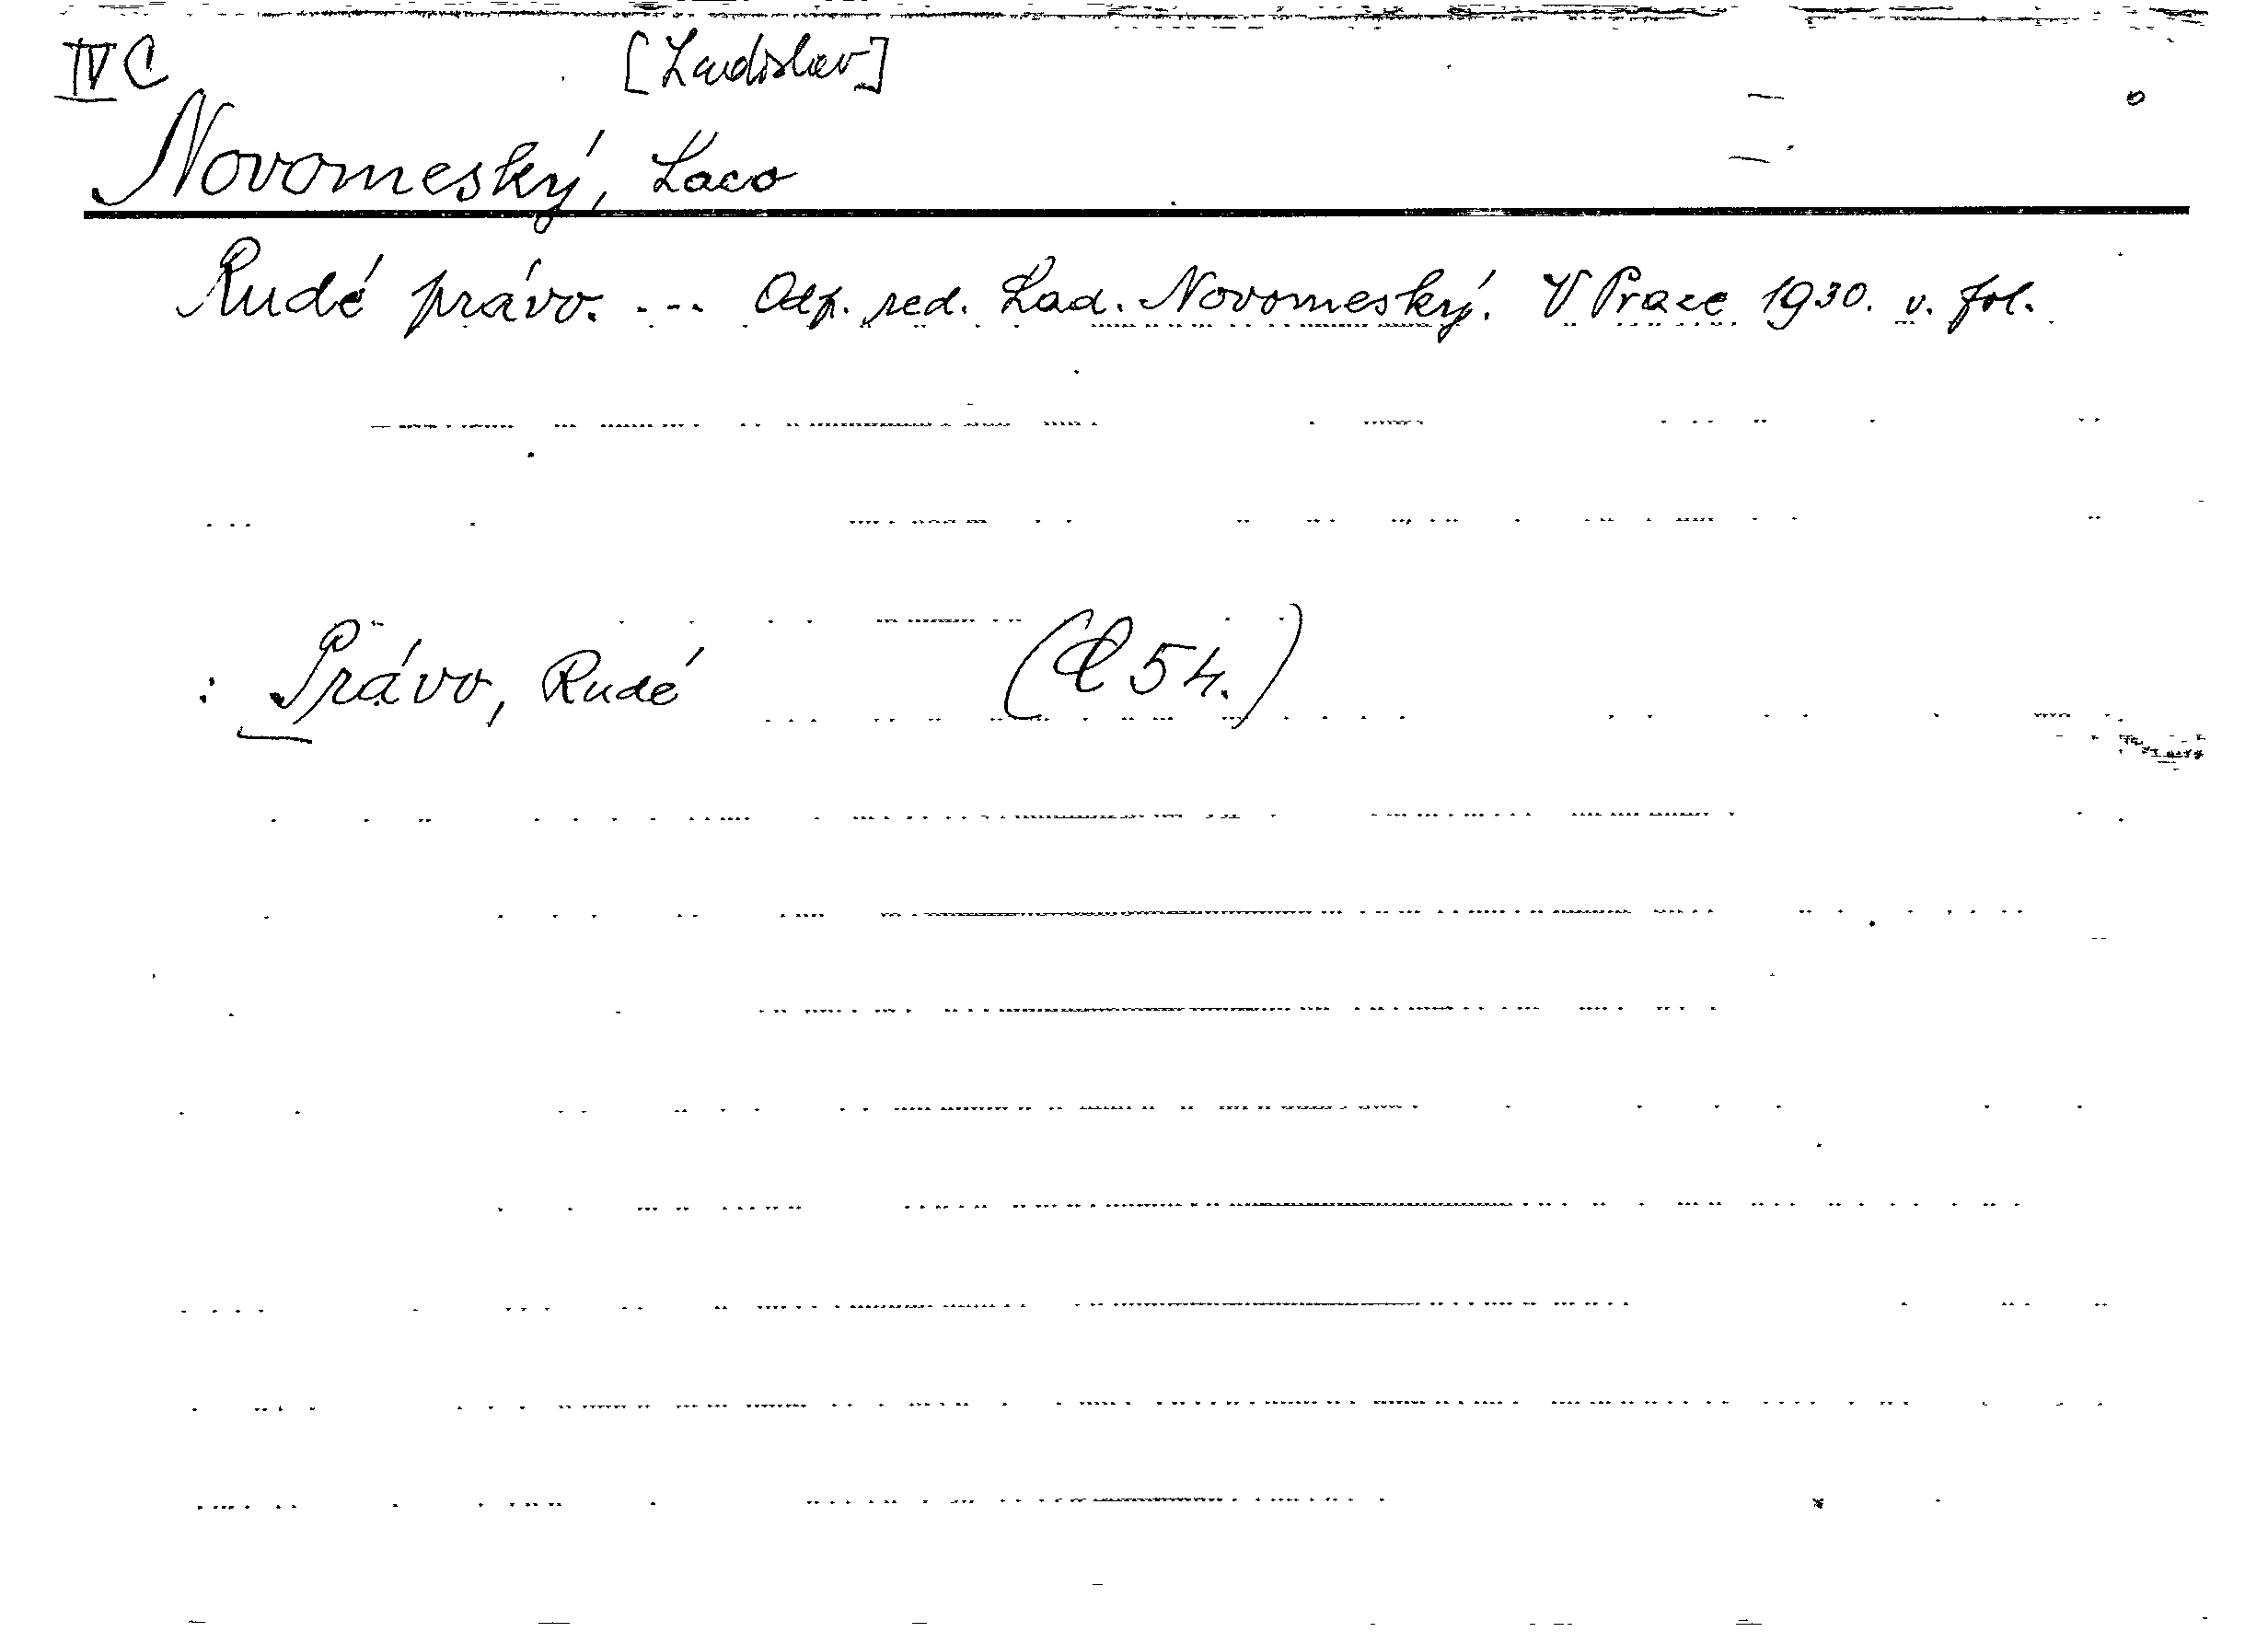 IV C [Ladislav]
Novomeský, Laco
Rudé právo. --- Odp. red. Lad. Novomeský. V Praze 1930. v. fol.
: Právo, Rudé (54.)